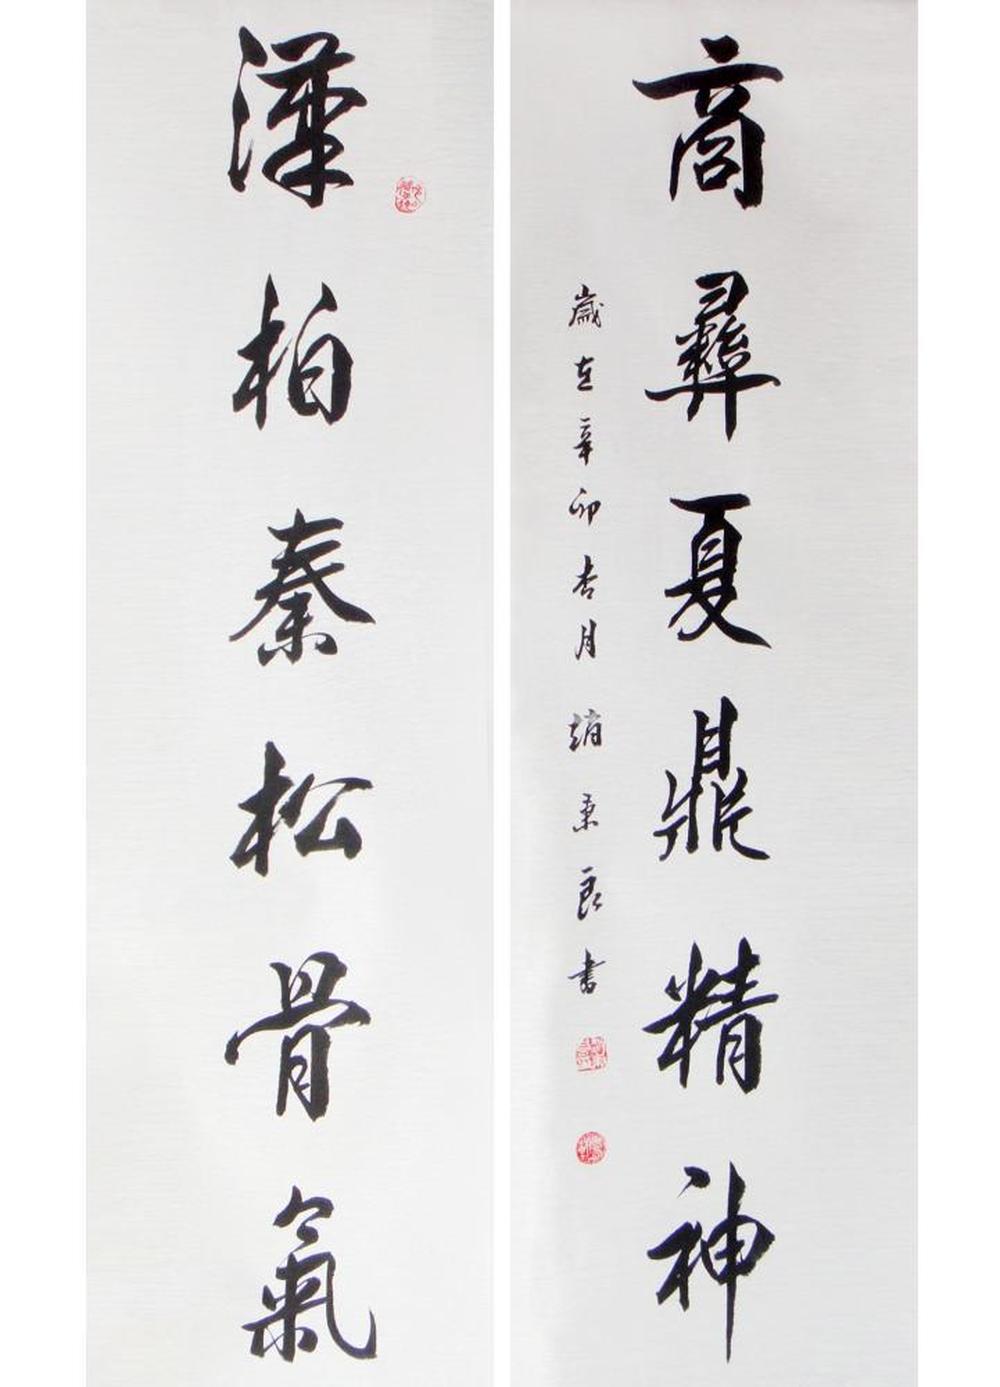 漢柏秦松骨氣
商彝夏鼎精神
歲在辛卯杏月 趙秉良書